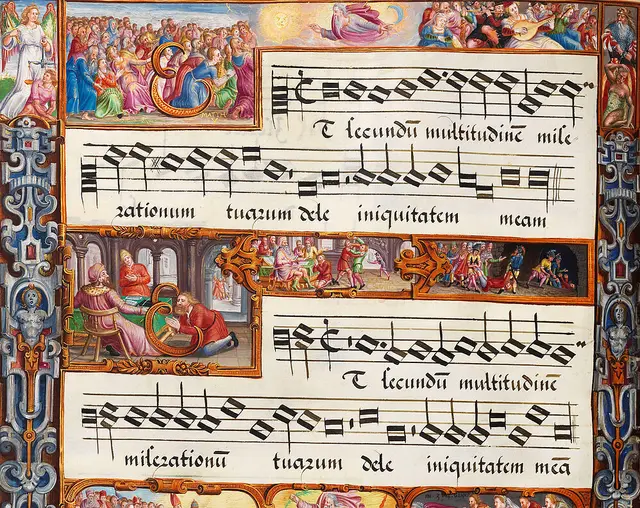 Et secundũ multitudinẽ mise
rationum tuarum dele iniquitatem meam
Et secundũ multitudinẽ
miserationũ tuarum dele iniquitatem meã